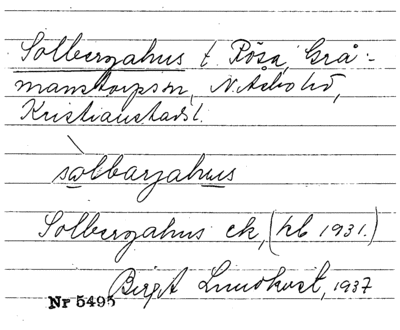 Solbergahus t. Rösa, Grå-
manstorps sn, N. Åsbo hd,
Kristianstads l.
solbarjahus
Solbergahus ek, (hb 1931.)
Birgit Lundkvist, 1937
Nr 5495